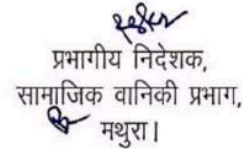 प्रभागीय निदेशक,
सामाजिक वानिकी प्रभाग,
मथुरा।